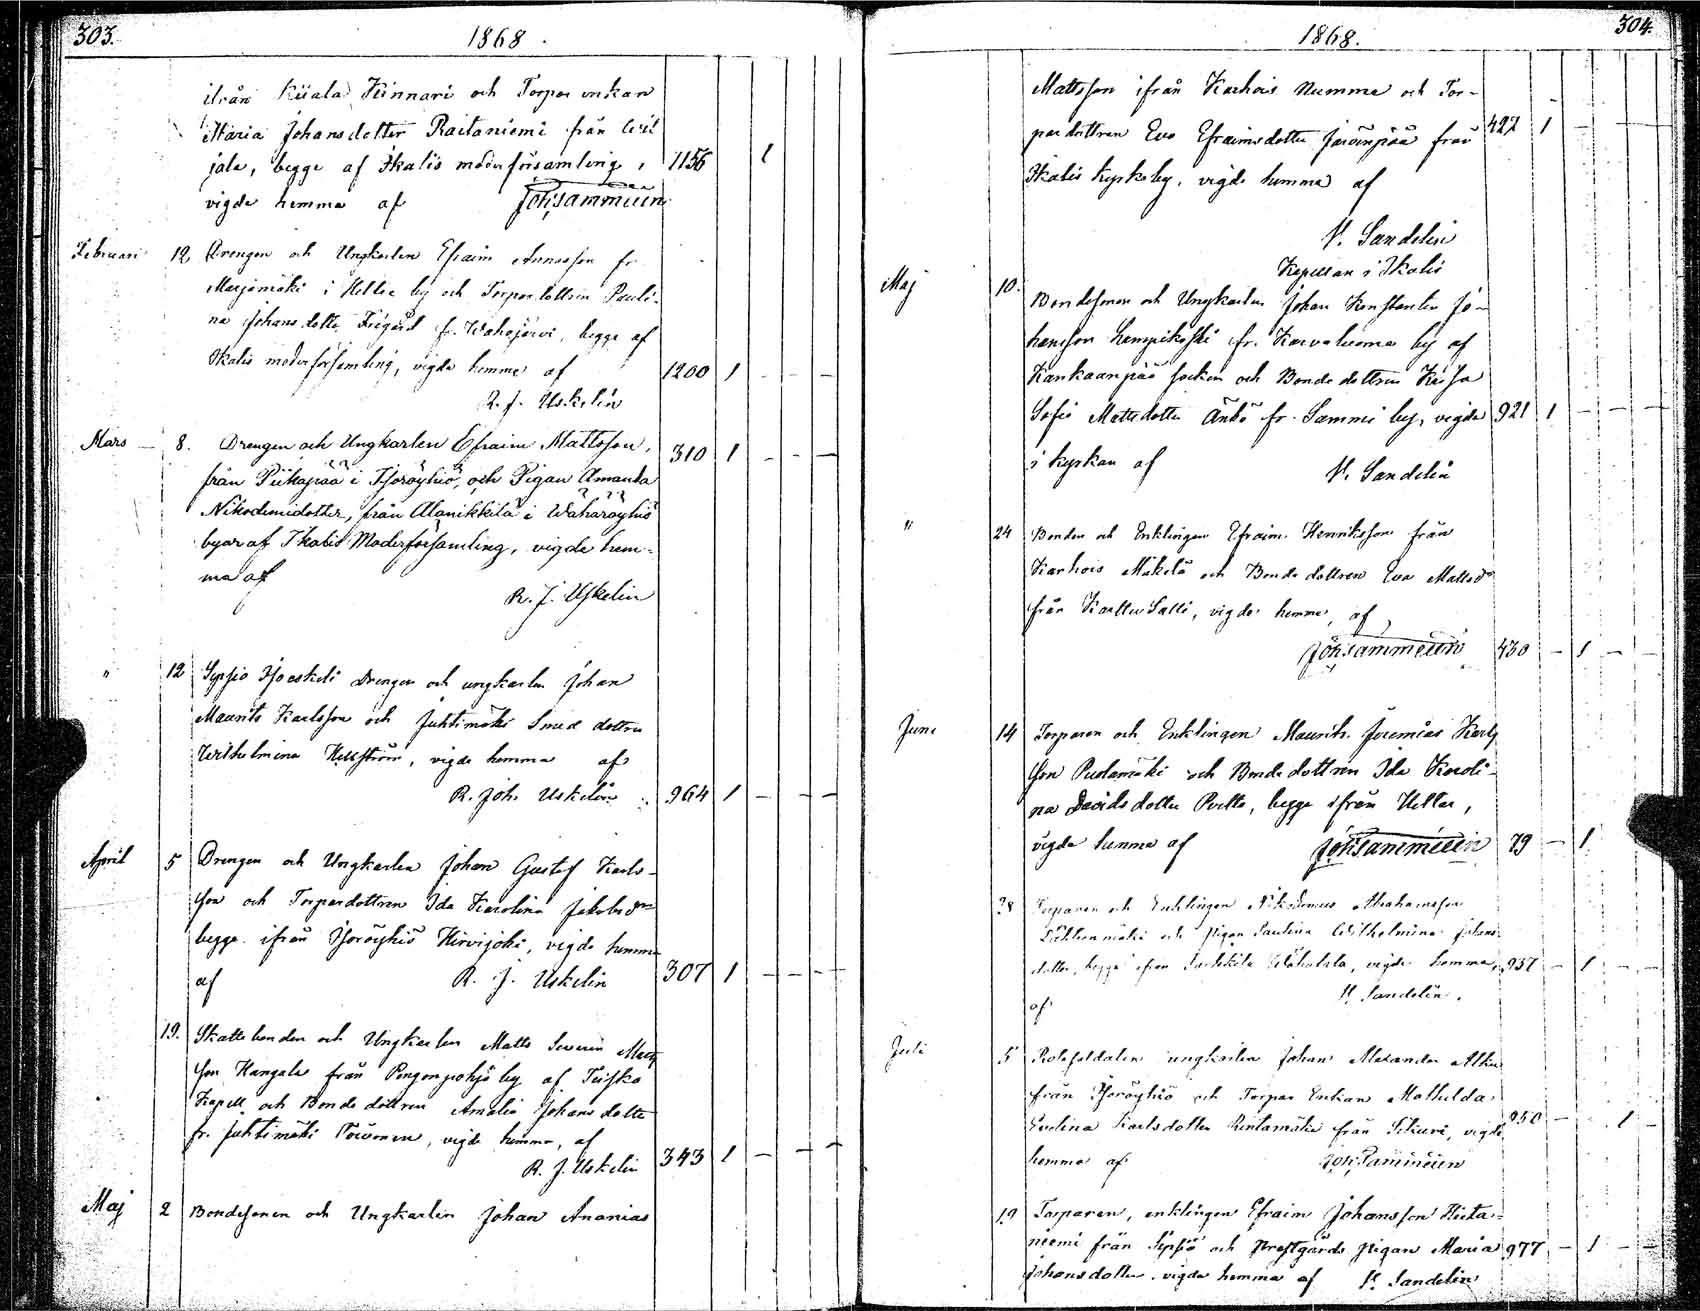 303.
1868.
ifrån Küala Kinnari och Torpar enkan
Maria Johansdotter Raitaniemi från
jala, begge af Ikalis moderförsamling, 1156 1
vigde hemma af Joh: Sammeün
Februari 12. Drengen och Ungkarlen Efraim Annasson fr.
Marjamäki i Heltta by och Torpardottren Pauli-
na Johansdotter Frigård fr. Wahojärvi, begge af
Ikalis moderförsamling, vigde hemma af 1200 1 - - -
R. J. Uskelin
Mars - 8. Drengen och Ungkarlen Efraim Mattsson, 310 1 - - -
från Piikapää i Tforöyhiö, och Pigan Amanda
Nikodemidotter, från Alanikkilä i Waharöyhiö
byar af Ikalis Moderförsamling, vigde hem-
ma af
R. J. Uskelin
" 12 Seppio Drengen och ungkarlen Johan
Maurits Karlsson och Juhtimäki Smed dottren
Wilhelmina Hellström, vigde hemma af
R. Joh. Uskelin 964 1 - - -
April 5 Drengen och Ungkarlen Johan Gustaf Karls-
son och Torpardottren Ida Karolina Jakobsdr
begge ifrån Hirvijoki, vigde hemma
af R. J. Uskelin 307 1 - - -
19. Skattebonden och Ungkarlen Matts Severin Matts
son Kangala från Pengonpohja by af
Kapell och Bonde dottren Amalia Johansdotter
fr. Juhtimäki Toivonen, vigde hemma, af
R. J. Uskelin 343 1 - - -
Maj 2 Bondesonen och Ungkarlen Johan Ananias
1868.
304.
Mattsson ifrån Karhois Numma och Tor-
pardottren Eva Efraimsdotter Järvenpää från 427 1 - - -
Ikalis kyrkoby, vigde hemma af
V. Sandelin
Kapellan i Ikalis
Maj 10. Bondesonen och Ungkarlen Johan Konstantin Jo-
hansson Lampikoski fr. Karvaluoma by af
Kankaanpää socken och Bonde dottren Kajsa
Sofia Mattsdotter Änbö fr. Sammi by, vigde 921 1 - - -
i kyrkan af V. Sandelin
" 24 Bonden och Enklingen Efraim Henriksson från
Karhois Mäkelä och Bonde dottren Eva Mattsdr
från Kartlu Salli, vigde hemma, af
Joh: Sammeün 430 - 1 - -
Juni 14 Torparen och Enklingen Maurits Jeremias Karls
son Pudasmäki och Bonde dottren Ida Karoli-
na Davidsdotter Pollu, begge ifrån Heltta,
vigde hemma af Joh: Sammeün 79 - 1 - -
28 Torparen och Enklingen Nikodemus Abrahamsson
och Pigan Paulina Wilhelmina Johans
dotter, begge ifrån, vigde hemma, 937 - 1 - -
af V. Sandelin.
Juli 5 ungkarlen Johan Alexander
från och Torpar Enkan Mathilda
Evelina Karlsdotter Rintamäki från Sikuri, vigde 950 - - 1 -
hemma af Joh: Sammeün
19 Torparen, enklingen Efraim Johansson Hieta-
niemi från Seppiö och Prestgårds Pigan Maria 977 - 1 - -
Johansdotter, vigde hemma af V. Sandelin